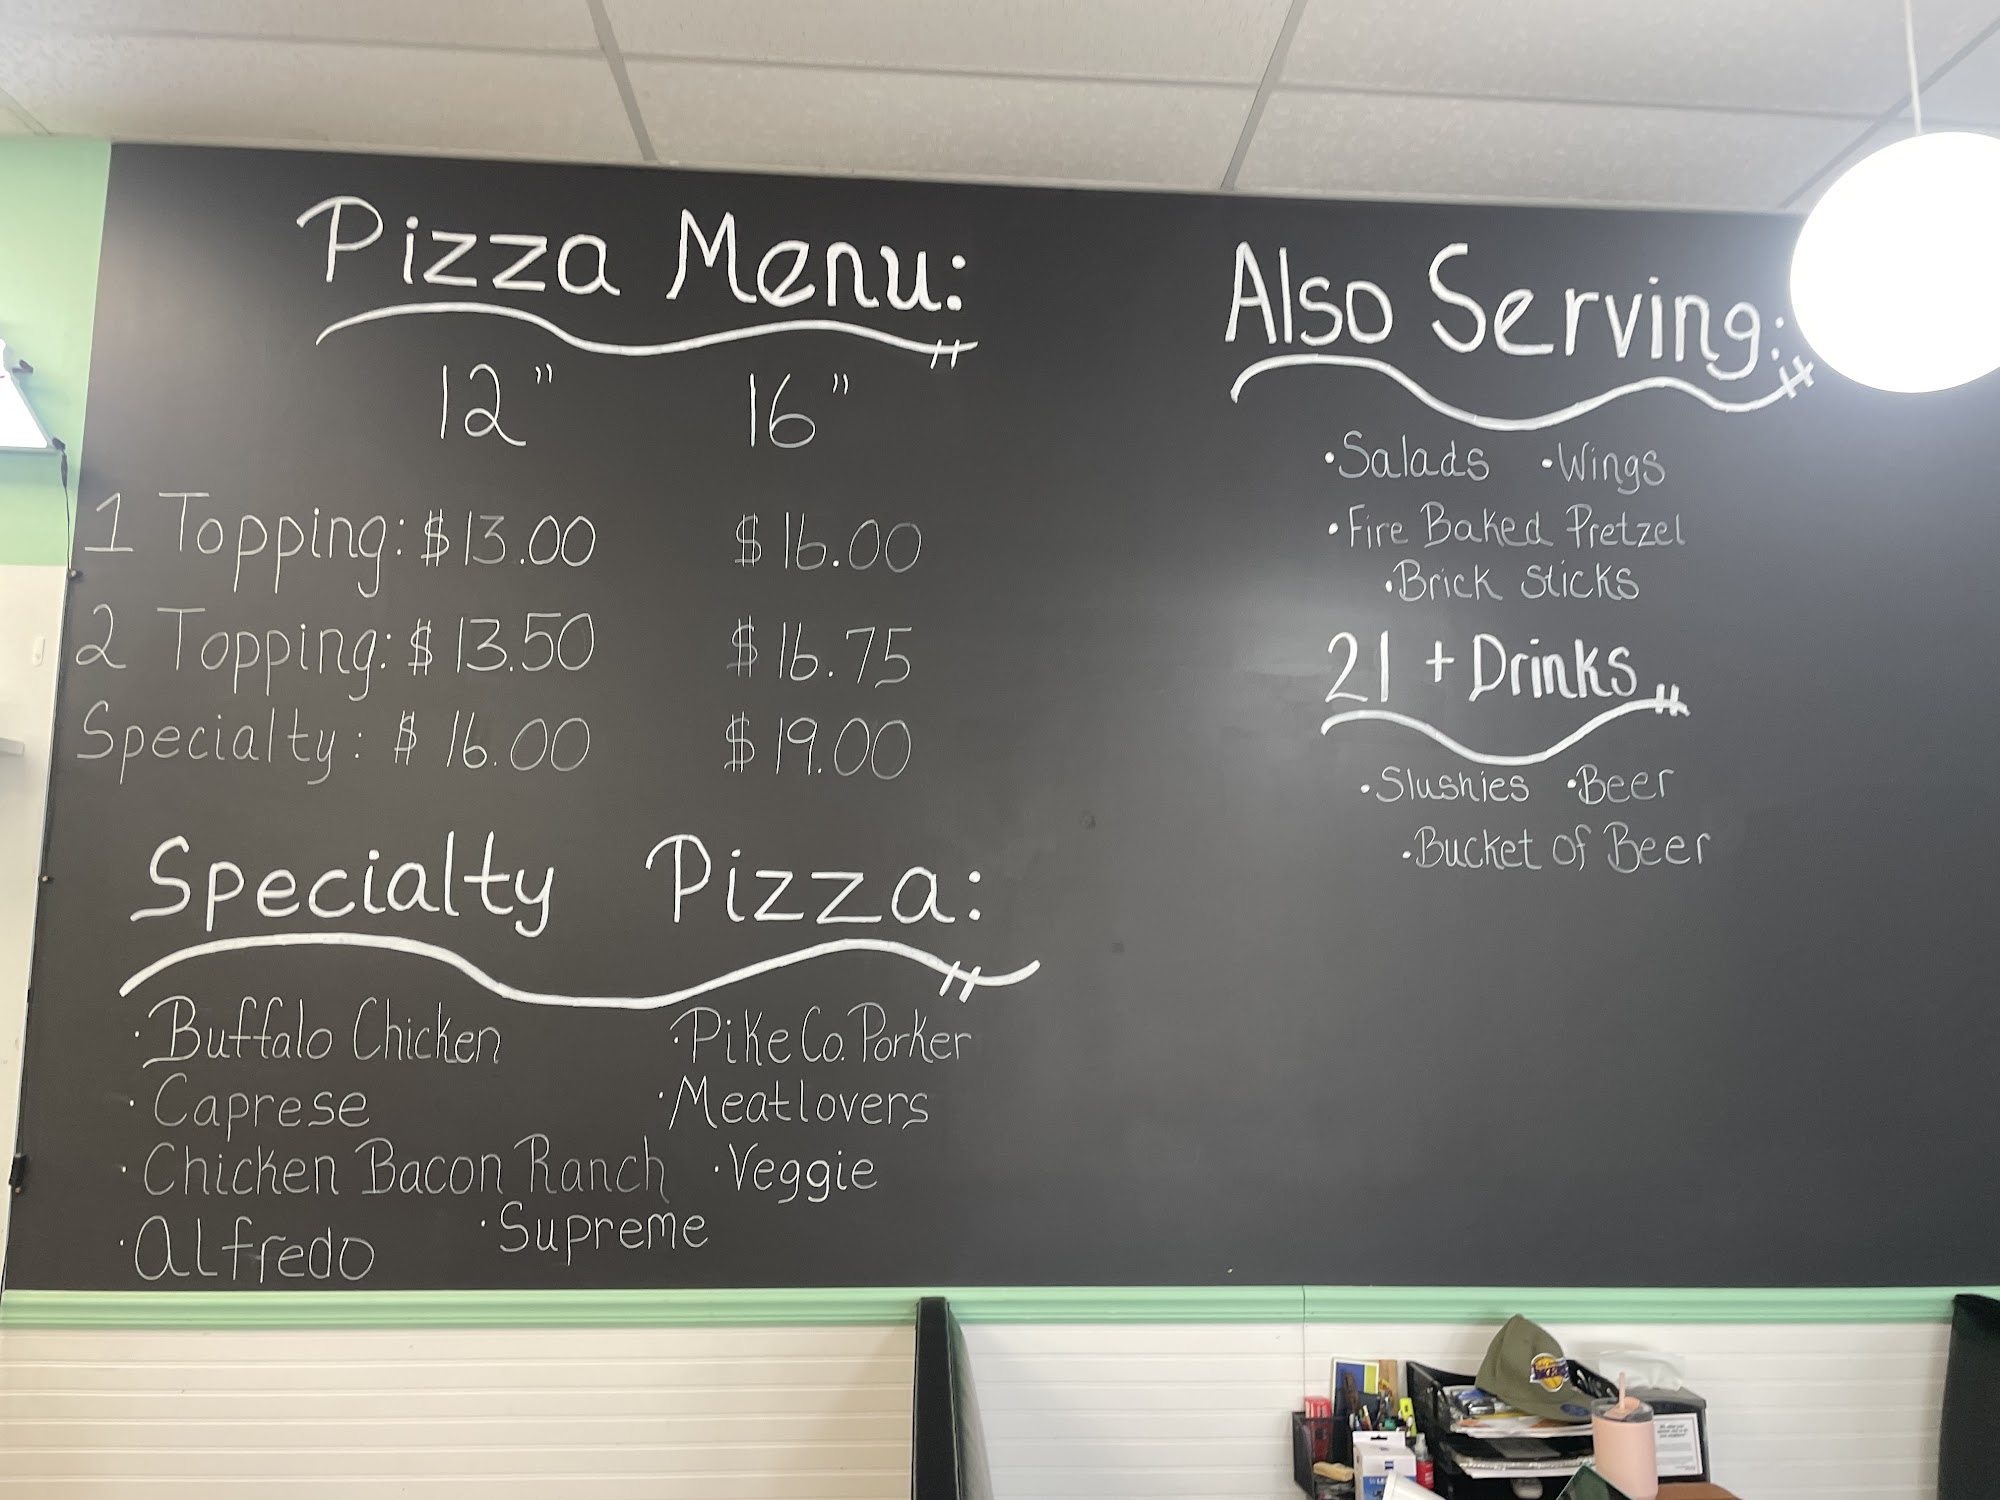 Pizza Menu:
12" 16"
1 Topping: $13.00 $16.00
2 Topping: $13.50 $16.75
Specialty: $16.00 $19.00
Specialty Pizza:
·Buffalo Chicken ·Pike Co. Porker
·Caprese ·Meatlovers
·Chicken Bacon Ranch ·Veggie
·Alfredo ·Supreme
Also Serving:
·Salads ·Wings
·Fire Baked Pretzel
·Brick Sticks
21 + Drinks
·Slushies ·Beer
·Bucket of Beer